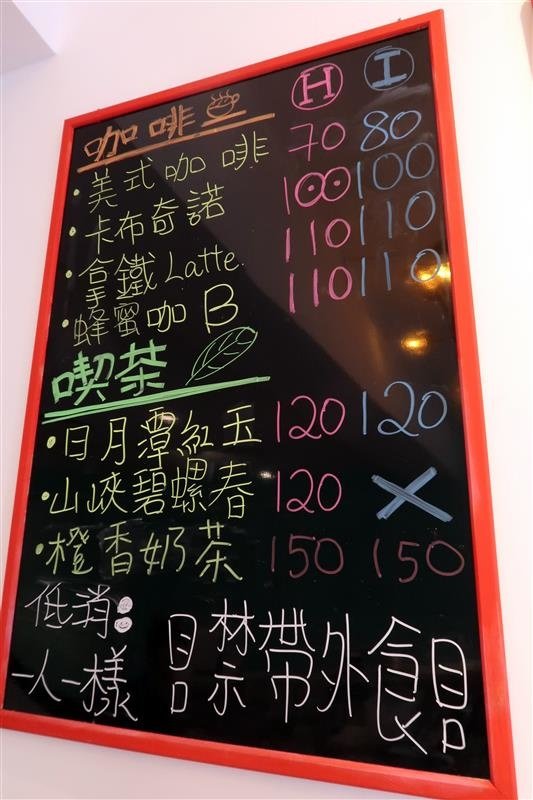 H I
咖啡
·美式咖啡 70 80
·卡布奇諾 100 100
·拿鐵 Latte. 110 110
·蜂蜜咖B 110 110
喫茶
·日月潭紅玉 120 120
·山峽碧螺春 120 X
·橙香奶茶 150 150
低消:
一人一樣
禁帶外食